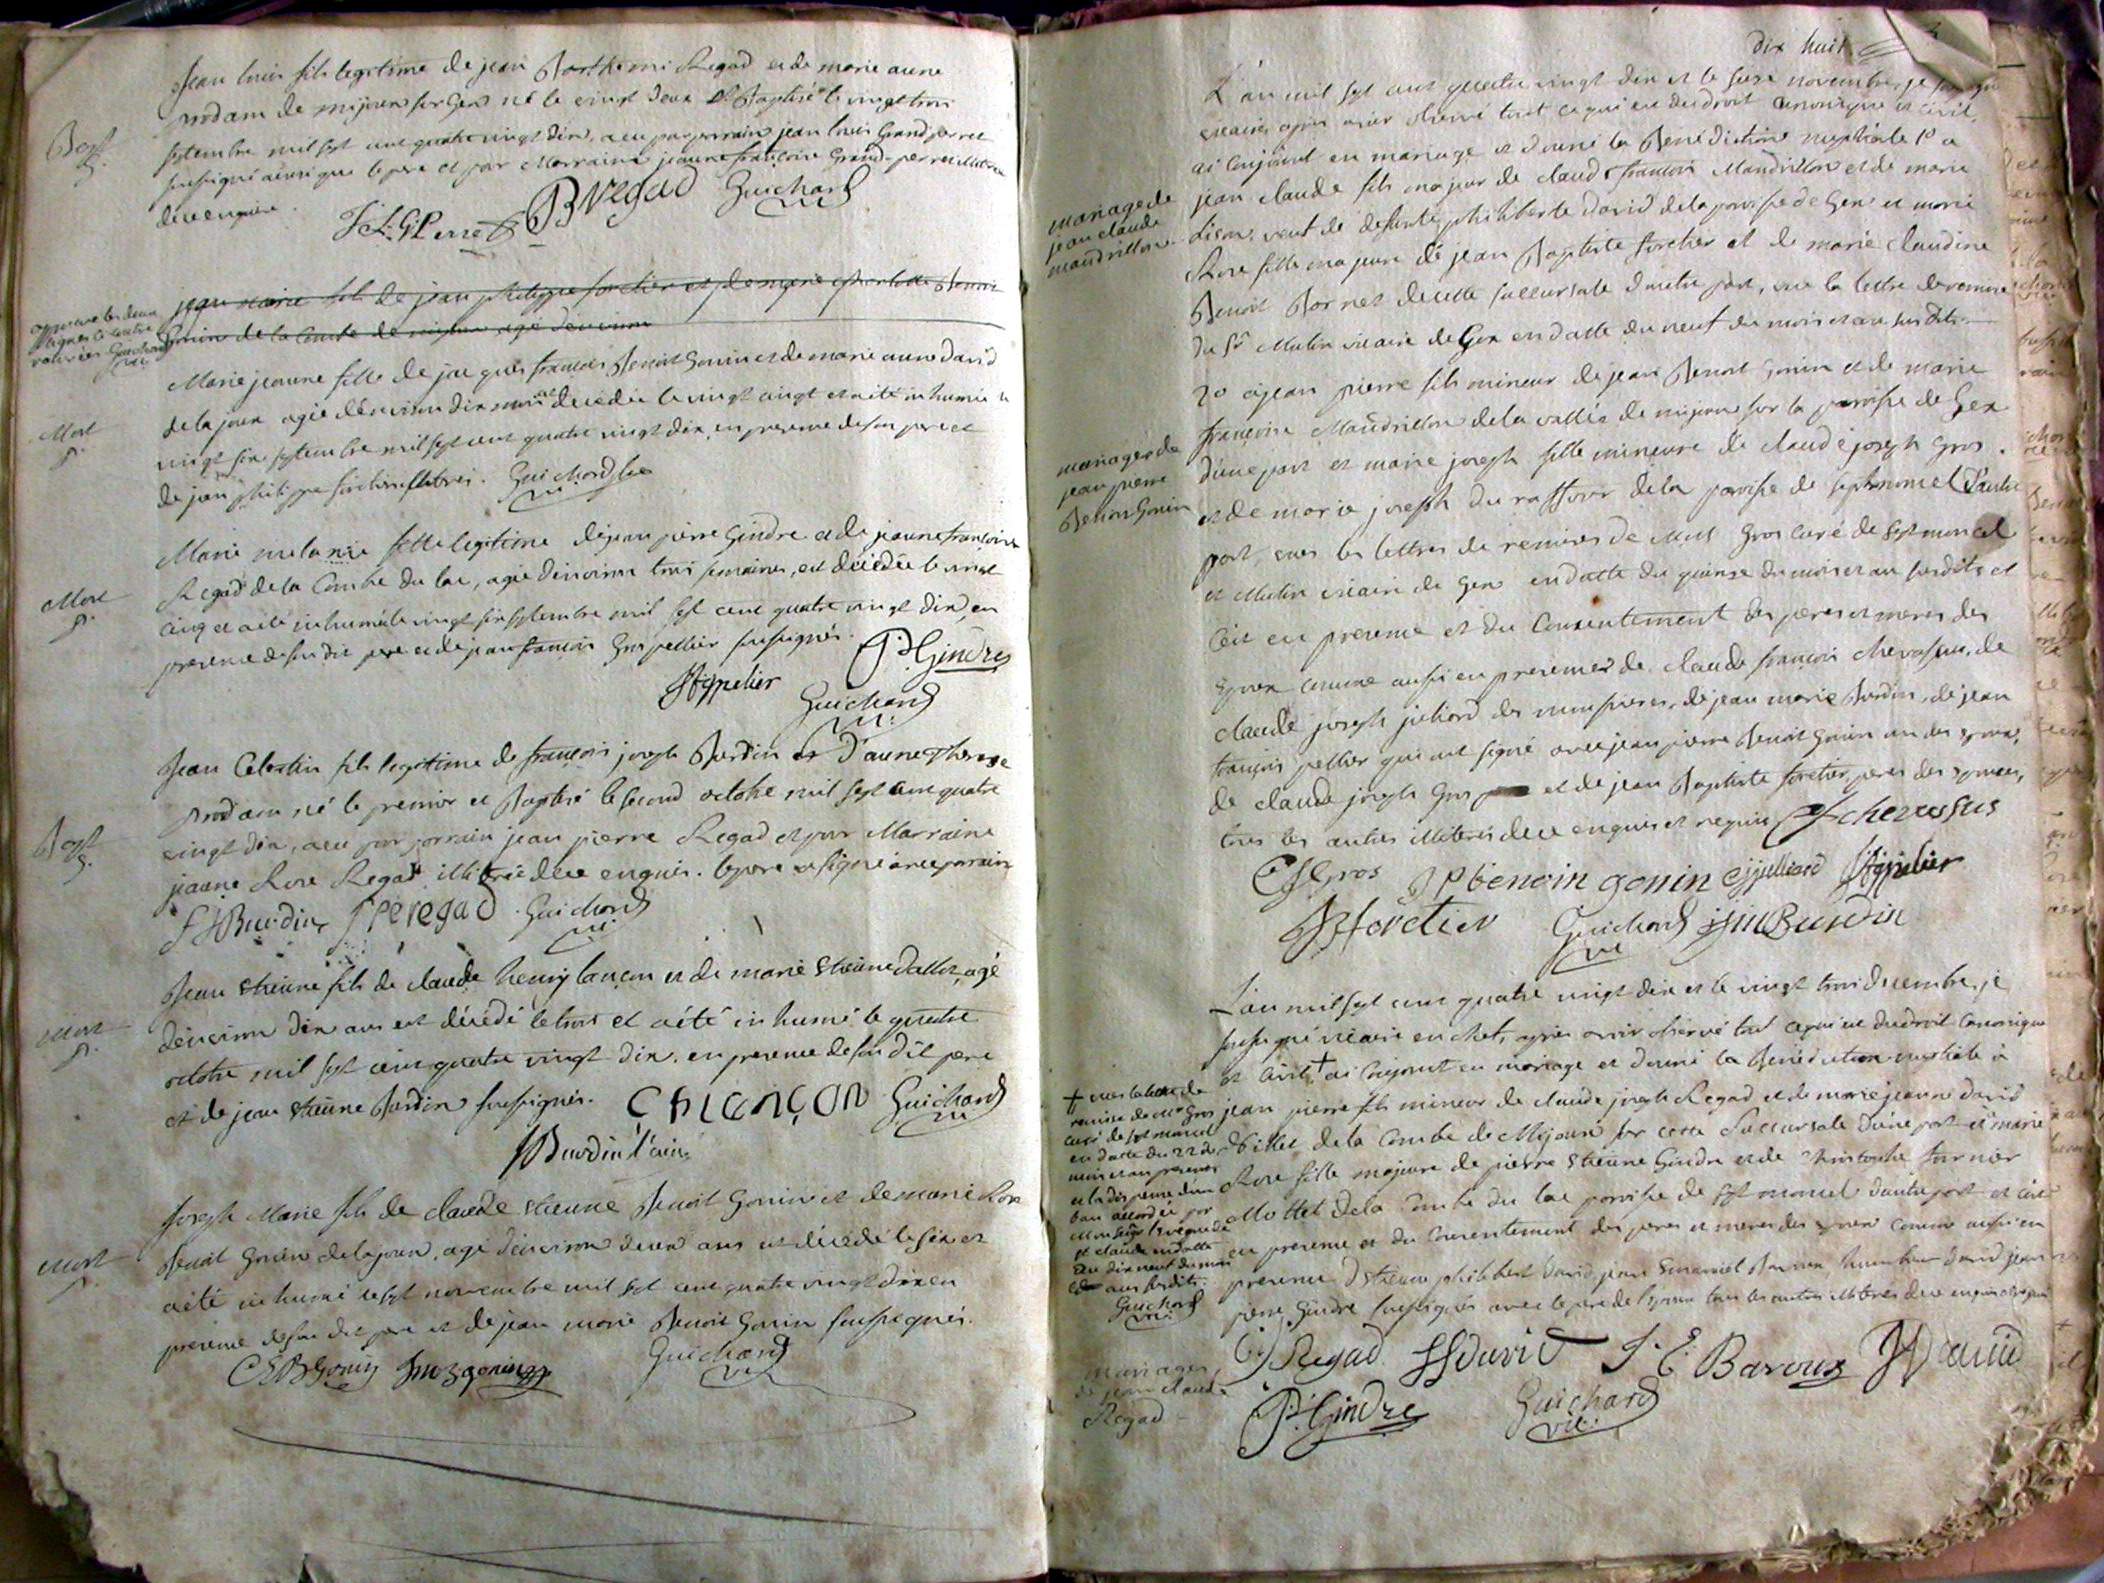 Jean louis fils legitime de jean Barthemi Regad et de marie anne
prodam de mijoux sur Gex né le vingt deux et Baptisé le vingt trois
septembre mil sept cent quatre vingt dix, a eu par parrain jean louis Grand perret
soussigné ainsi que le pere et par Marraine jeanne françoise Grand-perret illitrée
de ce enquise.
Bapt.
J. L. G. Perret B Regad Guichard
vic
jean marie fils de jean philippe forétier et de marie charlotte Benoit
Gonin de la Combe de mijoux agé d'environ
approuvé les deux
lignes ci contre
raturées Guichard
vic.
Marie jeanne fille de jacques françois Benoit Gonin et de marie anne David
de la joux agée d'environ dix mois est décédée le vingt cinq et a été inhumée le
vingt six septembre mil sept cent quatre vingt dix, en presence de son pere et
de jean philippe illitrés. Guichard vic
Mort
Marie melanie fille legitime de jean pierre Gindre et de jeanne françoise
Regad de la Combe du lac, agée d'environ trois semaines, est décédée le vingt
cinq et a été inhumée le vingt six septembre mil sept cent quatre vingt dix, en
presence de son dit pere et de jean françois Gros pellier soussignés.
Mort
P. Gindre
Guichard
vic.
Jean Celestin fils legitime de françois joseph Burdin et d'anne Therese
prodam né le premier et Baptisé le second octobre mil sept cent quatre
vingt dix, a eu par parrain jean pierre Regad et pour Marraine
jeanne Rose Regad illitrée de ce enquise. le pere a signé avec parrain
Bapt.
F J Burdin J P e regad Guichard
vic
Jean Etienne fils de claude henry lançon et de marie Etienne Dalloz, agé
d'environ dix ans est décédé le trois et a été inhumé le quatre
octobre mil sept cent quatre vingt dix. en presence de son dit pere
et de jean Etienne Burdin soussignés. C h lançon Guichard
vic
Mort
Burdin l'ainé
Joseph Marie fils de claude Etienne Benoit Gonin et de marie Rose
Benoit Gonin de la joux, agé d'environ deux ans est décédé le six et
a été inhumé le sept novembre mil sept cent quatre vingt dix en
presence de son dit pere et de jean marie Benoit Gonin soussignés.
Mort
C E B Gonin J m B gonin Guichard
vic
dix huit
L'an mil sept cent quatre vingt dix et le seize novembre, je soussigné
vicaire, après avoir observé tout ce qui est du droit canonique et civil,
ai conjoint en mariage et donné la Benediction nuptiale 1º a
jean claude fils majeur de claude françois Mandrillon et de marie
veuf de defunte philiberte David de la paroisse de Gex et marie
Rose fille majeure de jean Baptiste forétier et de marie claudine
Benoit Bornet de cette succursale d'autre part, vue la lettre de remise
du Sr Mutin vicaire de Gex en datte du neuf du mois et an susdits.
mariage de
jean claude
mandrillon
2º a jean pierre fils mineur de jean Benoit Gonin et de marie
françoise Mandrillon de la vallée de mijoux sur la paroisse de Gex
d'une part et marie joseph fille mineure de claude joseph Gros
et de marie joseph du raffour de la paroisse de septmoncel d'autre
part, vues les lettres de remises de Gros curé de septmoncel
et Mutin vicaire de Gex en datte du quinze du mois et an susdits et
ce en presence et du Consentement des peres et meres des
epoux comme aussi en presence de claude françois chevassus, de
claude joseph juliard des de jean marie Burdin, de jean
françois pellier qui ont signé avec jean pierre Benoit Gonin un des epoux,
de claude joseph Gros et de jean Baptiste forétier, peres des epouses,
tous les autres illiterés de ce enquis et requis Cf chevassus
mariage de
jean pierre
Benoit Gonin
C J Gros J P benoin gonin cjjulliard
B forétier Guichard jm Burdin
vic
L'an mil sept cent quatre vingt dix et le vingt trois decembre, je
soussigné vicaire en chef, après avoir observé tout ce qui est du droit canonique
et civil + ai conjoint en mariage et donné la Benediction nuptiale à
jean pierre fils mineur de claude joseph Regad et de marie jeanne David
Billet de la Combe de Mijoux sur cette succursale d'une part et marie
Rose fille majeure de pierre Etienne Gindre et de Christophe fournier
Mottet de la Combe du lac paroisse de sept moncel d'autre part et ce
en presence et du Consentement des peres et meres des epoux comme aussi en
presence d'Etienne philibert David, jean Emanuel Baroux, humbert David, jean
pierre Gindre soussignés avec le pere de l'epoux tous les autres illitérés de ce enquis et requis
+ vues la lettre de
remise de Mr Gros
curé de sept moncel
en datte du 22 du
mois et an presents
et la dispense d'un
ban accordée par
Monseigr l'eveque de
st claude en datte
du dix neuf du mois
et an susdits.
Guichard
vic.
C J Regad David J. E. Baroux H David
P. Gindre Guichard
vic.
mariage
de jean claude
Regad